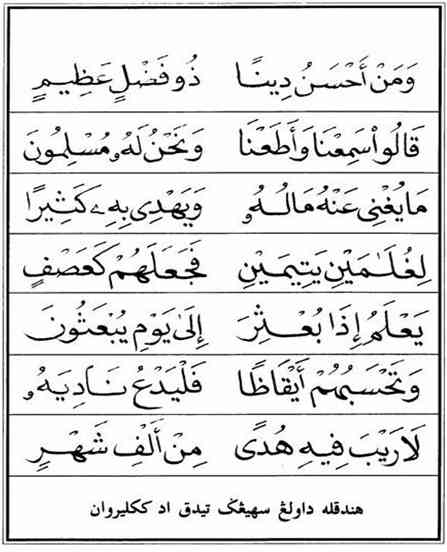 وَمَنْ أَحْسَنُ دِينًا ذُو فَضْلٍ عَظِيمٍ
قَالُوا۟ سَمِعْنَا وَأَطَعْنَا وَنَحْنُ لَهُۥ مُسْلِمُونَ
مَا يُغْنِى عَنْهُ مَالُهُۥ وَيَهْدِى بِهِۦ كَثِيرًا
لِغُلَٰمَيْنِ يَتِيمَيْنِ فَجَعَلَهُمْ كَعَصْفٍ
يَعْلَمُ إِذَا بُعْثِرَ إِلَىٰ يَوْمِ يُبْعَثُونَ
وَتَحْسَبُهُمْ أَيْقَاظًا فَلْيَدْعُ نَادِيَهُۥ
لَا رَيْبَ فِيهِ هُدًى مِنْ أَلْفِ شَهْرٍ
هندقله داولڠ سهيڠݢ تيدق اد ککليروان